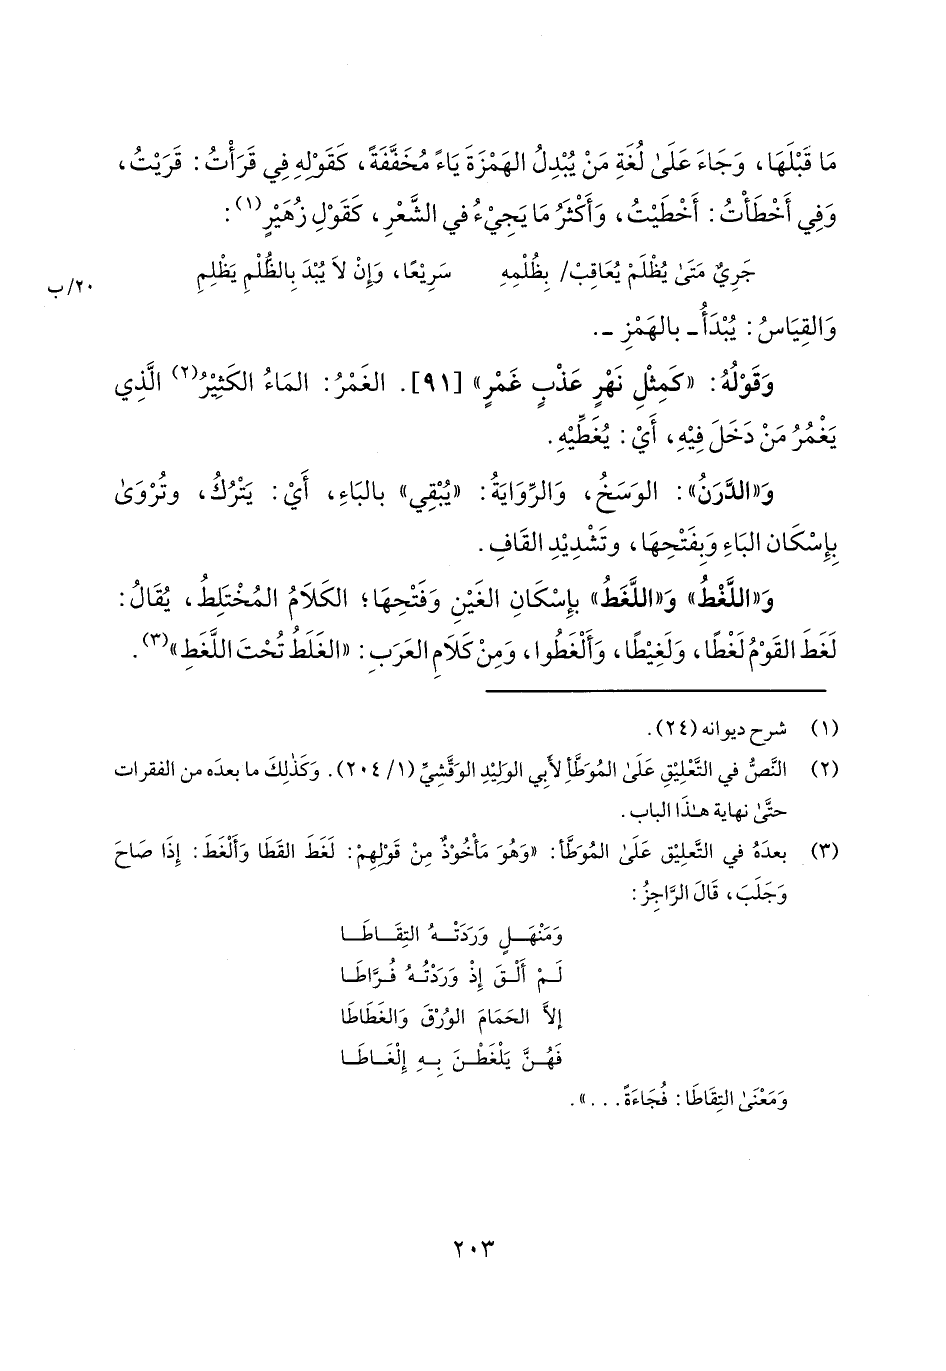 مَا قَبْلَهَا، وَجَاءَ عَلَىٰ لُغَةِ مَنْ يُبْدِلُ الهَمْزَةَ يَاءً مُخَفَّفَةً، كَقَوْلِهِ فِي قَرَأْتُ: قَرَيْتُ،
وَفِي أَخْطَأْتُ: أَخْطَيْتُ، وَأَكْثَرُ مَا يَجِيْءُ في الشَّعْرِ، كَقَوْلِ زُهَيْرٍ(١):
جَرِيٌ مَتَىٰ يُظْلَمْ يُعَاقِبْ/ بِظُلْمِهِ سَرِيْعًا، وَإِنْ لاَ يُبْدَ بِالظُّلْمِ يَظْلِمِ
٢٠/ب
وَالقِيَاسُ: يُبْدَأُ ـ بالهَمْزِ ـ.
وَقَوْلُهُ: «كَمِثْلِ نَهْرٍ عَذْبٍ غَمْرٍ» [٩١]. الغَمْرُ: المَاءُ الكَثِيْرُ(٢) الَّذِي
يَغْمُرُ مَنْ دَخَلَ فِيْهِ، أَيْ: يُغَطِّيْهِ.
وَ«الدَّرَنُ»: الوَسَخُ، وَالرِّوَايَةُ: «يُبْقِي» بالبَاءِ، أَيْ: يَتْرُكُ، وتُرْوَىٰ
بِإِسْكَانِ البَاءِ وَبِفَتْحِهَا، وتَشْدِيْدِ القَافِ.
وَ«اللَّغْطُ» وَ«اللَّغَطُ» بِإِسْكَانِ الغَيْنِ وَفَتْحِهَا؛ الكَلَامُ المُخْتَلِطُ، يُقَالُ:
لَغَطَ القَوْمُ لَغْطًا، وَلَغِيْطًا، وَأَلْغَطُوا، وَمِنْ كَلَامِ العَرَبِ: «الغَلَطُ تُحْتَ اللَّغَطِ»(٣).
(١) شرح ديوانه (٢٤).
(٢) النَّصُّ في التَّعْلِيْقِ عَلَىٰ المُوَطَّأِ لأَبِي الوَلِيْدِ الوَقَّشِيِّ (١/ ٢٠٤). وَكَذٰلِكَ ما بعدَه من الفقرات
حتَّىٰ نهاية هـٰذَا الباب.
(٣) بعدَهُ في التَّعلِيْق عَلَىٰ المُوَطَّأ: «وَهُوَ مَأْخُوْذٌ مِنْ قَوْلِهِمْ: لَغَطَ القَطَا وَأَلْغَطَ: إِذَا صَاحَ
وَجَلَبَ، قَالَ الرَّاجِزُ:
وَمَنْهَـلٍ وَرَدْتُـهُ التِقَـاطَـا
لَـمْ أَلْـقَ إِذْ وَرَدْتُـهُ فُـرَّاطَـا
إلاَّ الحَمَامَ الوُرْقَ وَالغَطَاطَا
فَهُـنَّ يَلْغَطْـنَ بِـهِ إِلْغَـاطَـا
وَمَعْنَىٰ التِقَاطَا: فُجَاءَةً. . .».
٢٠٣